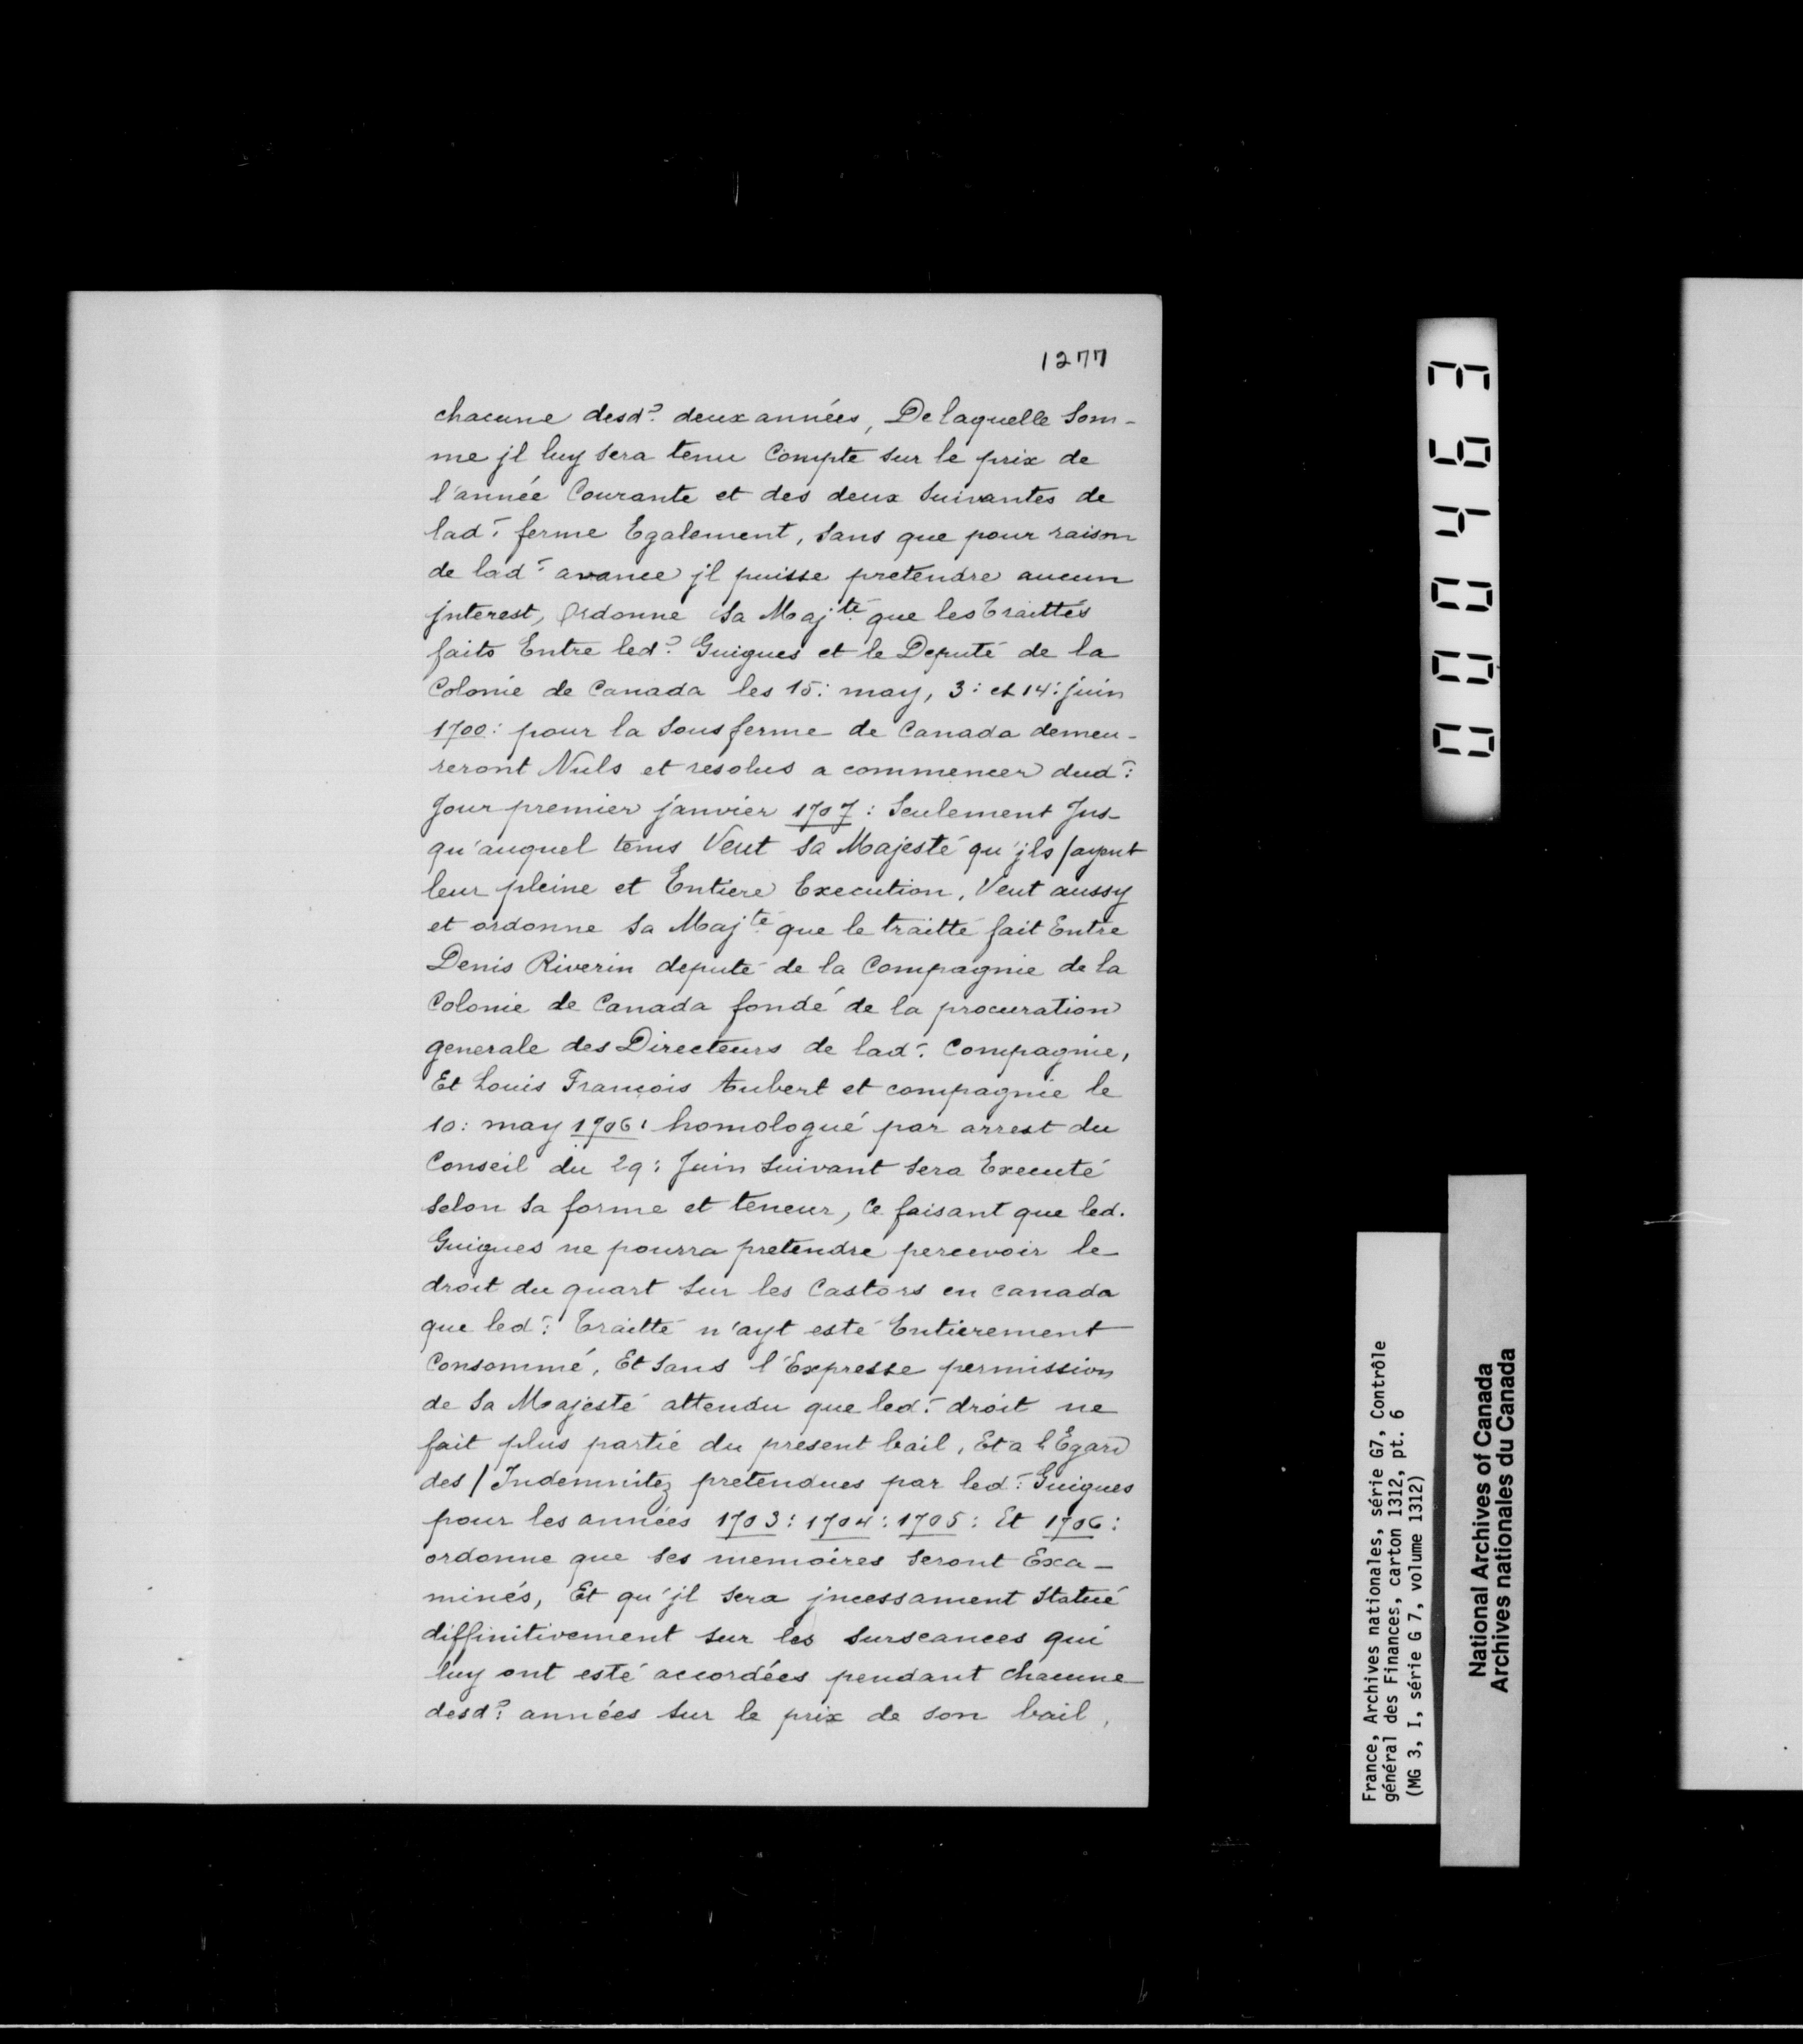 1277
chacune desd? deux années, De laquelle Som-
me jl luy sera tenu Compte sur le prix de
l'année Courante et des deux Suivantes de
lad: ferme Egalement, sans que pour raison
de lad: avance jl puisse pretendre aucun
jnterest, Ordonne Sa Maj.té que les traittés
faits Entre led? Guigues et le Deputé de la
Colonie de Canada les 15: may, 3: et 14: juin
1700: pour la Sousferme de Canada demeu-
reront Nuls et resolus a commencer dud:
Jour premier janvier 1707: Seulement Jus-
qu'auquel tems Veut Sa Majesté qu'jls /ayent
leur pleine et Entiere Execution, Veut aussy
et ordonne Sa Maj.té que le traitté fait Entre
Denis Riverin deputé de la Compagnie de la
Colonie de Canada fondé de la procuration
generale des Directeurs de lad: Compagnie,
Et Louis François Aubert et compagnie le
10: may 1706: homologué par arrest du
Conseil du 29: Juin Suivant Sera Executé
Selon Sa forme et teneur, Ce faisant que led.
Guigues ne pourra pretendre percevoir le
droit du quart Sur les Castors en Canada
que led: traitté n'ayt esté Entierement
Consommé, Et Sans l'Expresse permission
de Sa Majesté attendu que led: droit ne
fait plus partie du present bail, Et a l'Egard
des / Indemnitez pretendues par led: Guigues
pour les années 1703: 1704: 1705: Et 1706:
ordonne que ses memoires Seront Exa-
minés, Et qu'jl Sera jncessament Statué
diffinitivement sur les Surseances qui
luy ont esté accordées pendant Chacune
desd? années Sur le prix de son bail,
000463
France, Archives nationales, série G7, Contrôle
général des Finances, carton 1312, pt. 6
(MG 3, I, série G 7, volume 1312)
National Archives of Canada
Archives nationales du Canada